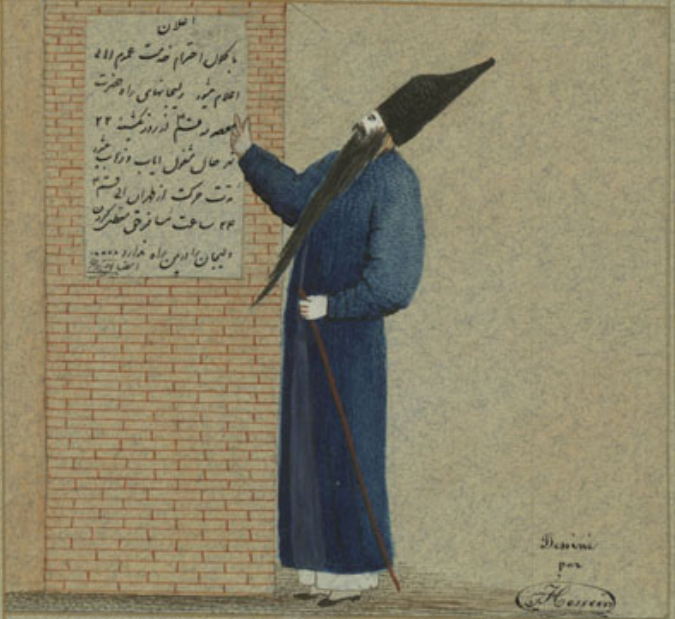 اعلان
با کمال احترام خدمت عموم اهالی
اعلام میشود دلیجانهای راه حضرت
معصومه قم از روز یکشنبه ۲۲
در حال مشغول ایاب و ذهاب میشود
مدت حرکت از طهران الی قم
۲۴ ساعت
دلیجان را درین راه ندارد
Dessiné
par
Hossein